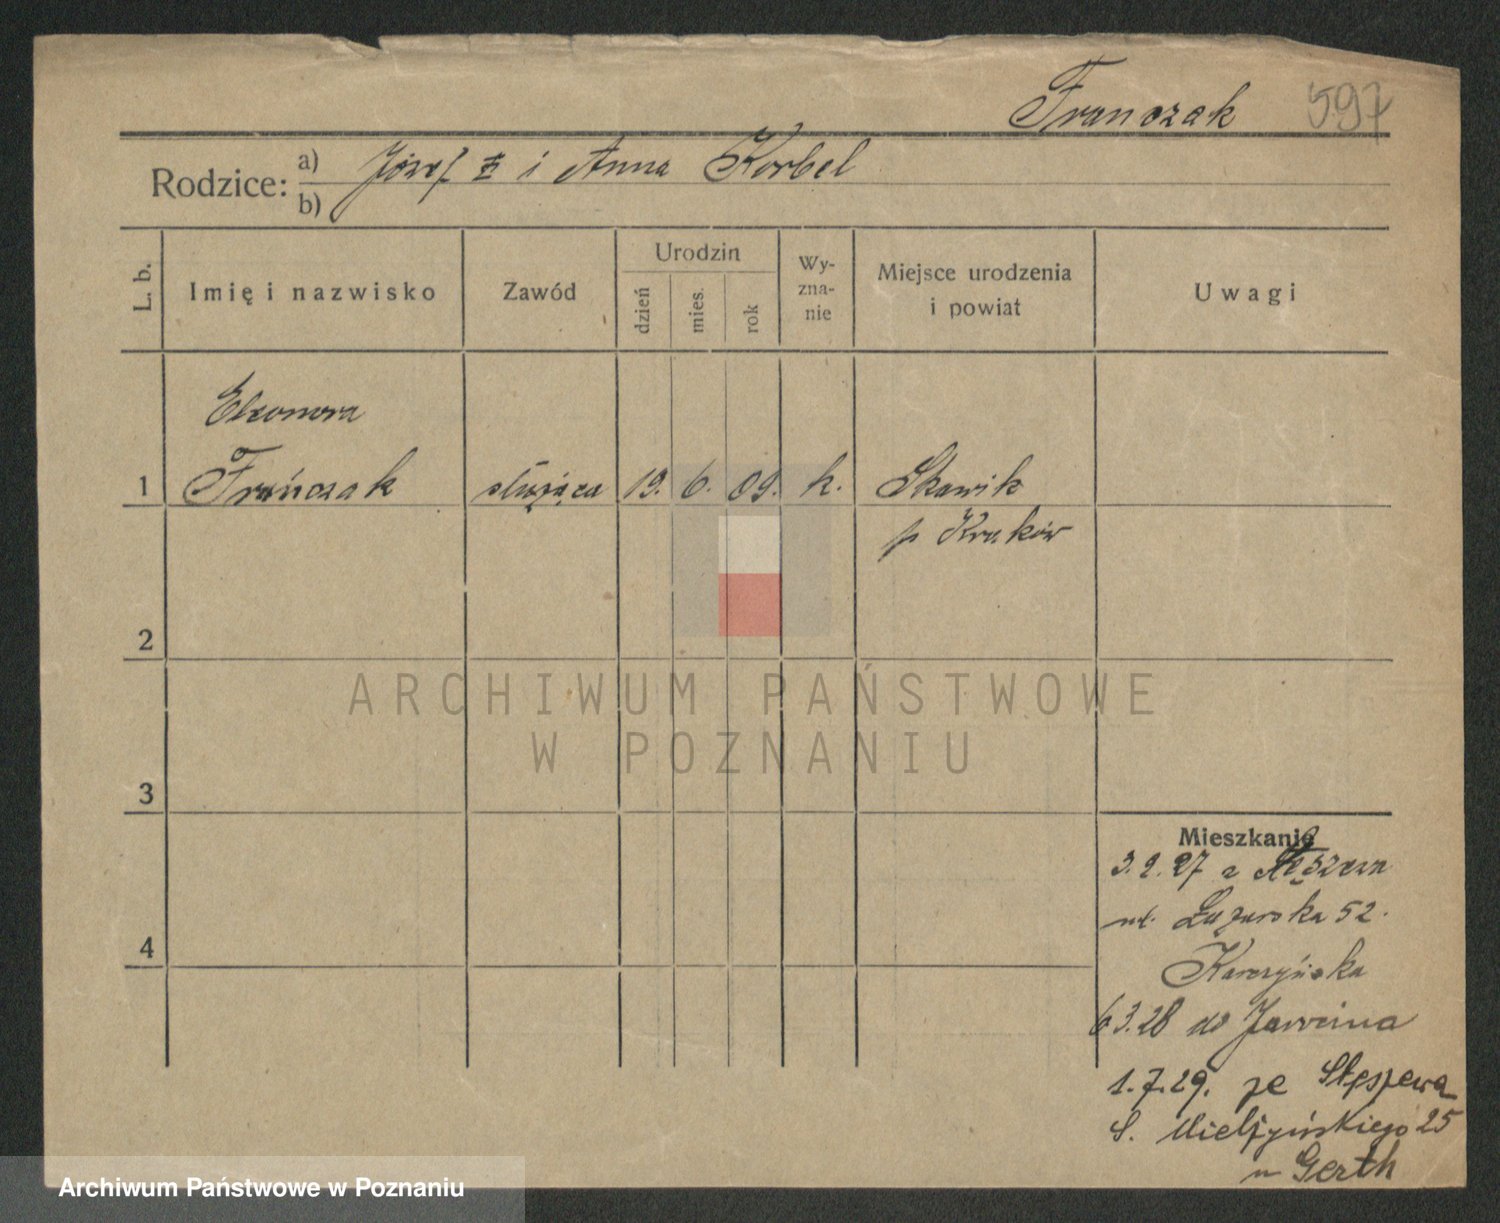 Franczak 597
Rodzice: a) Józef F. i Anna Korbel
b)
L. b.
Imię i nazwisko
Zawód
Urodzin
dzień
mies.
rok
Wy-
zna-
nie
Miejsce urodzenia
i powiat
Uwagi
Eleonora
1 Frańczak służąca 19. 6. 09. k. Skawik
p Kraków
2
3
4
Mieszkanie
3.2.27 z Stęszewa
ul. Łazarska 52.
Karczyńska
6 3.28 do Jarocina
1.7.29. ze Stęszewa
S. Mielżyńskiego 25
u Gerth
ARCHIWUM PAŃSTWOWE
W POZNANIU
Archiwum Państwowe w Poznaniu